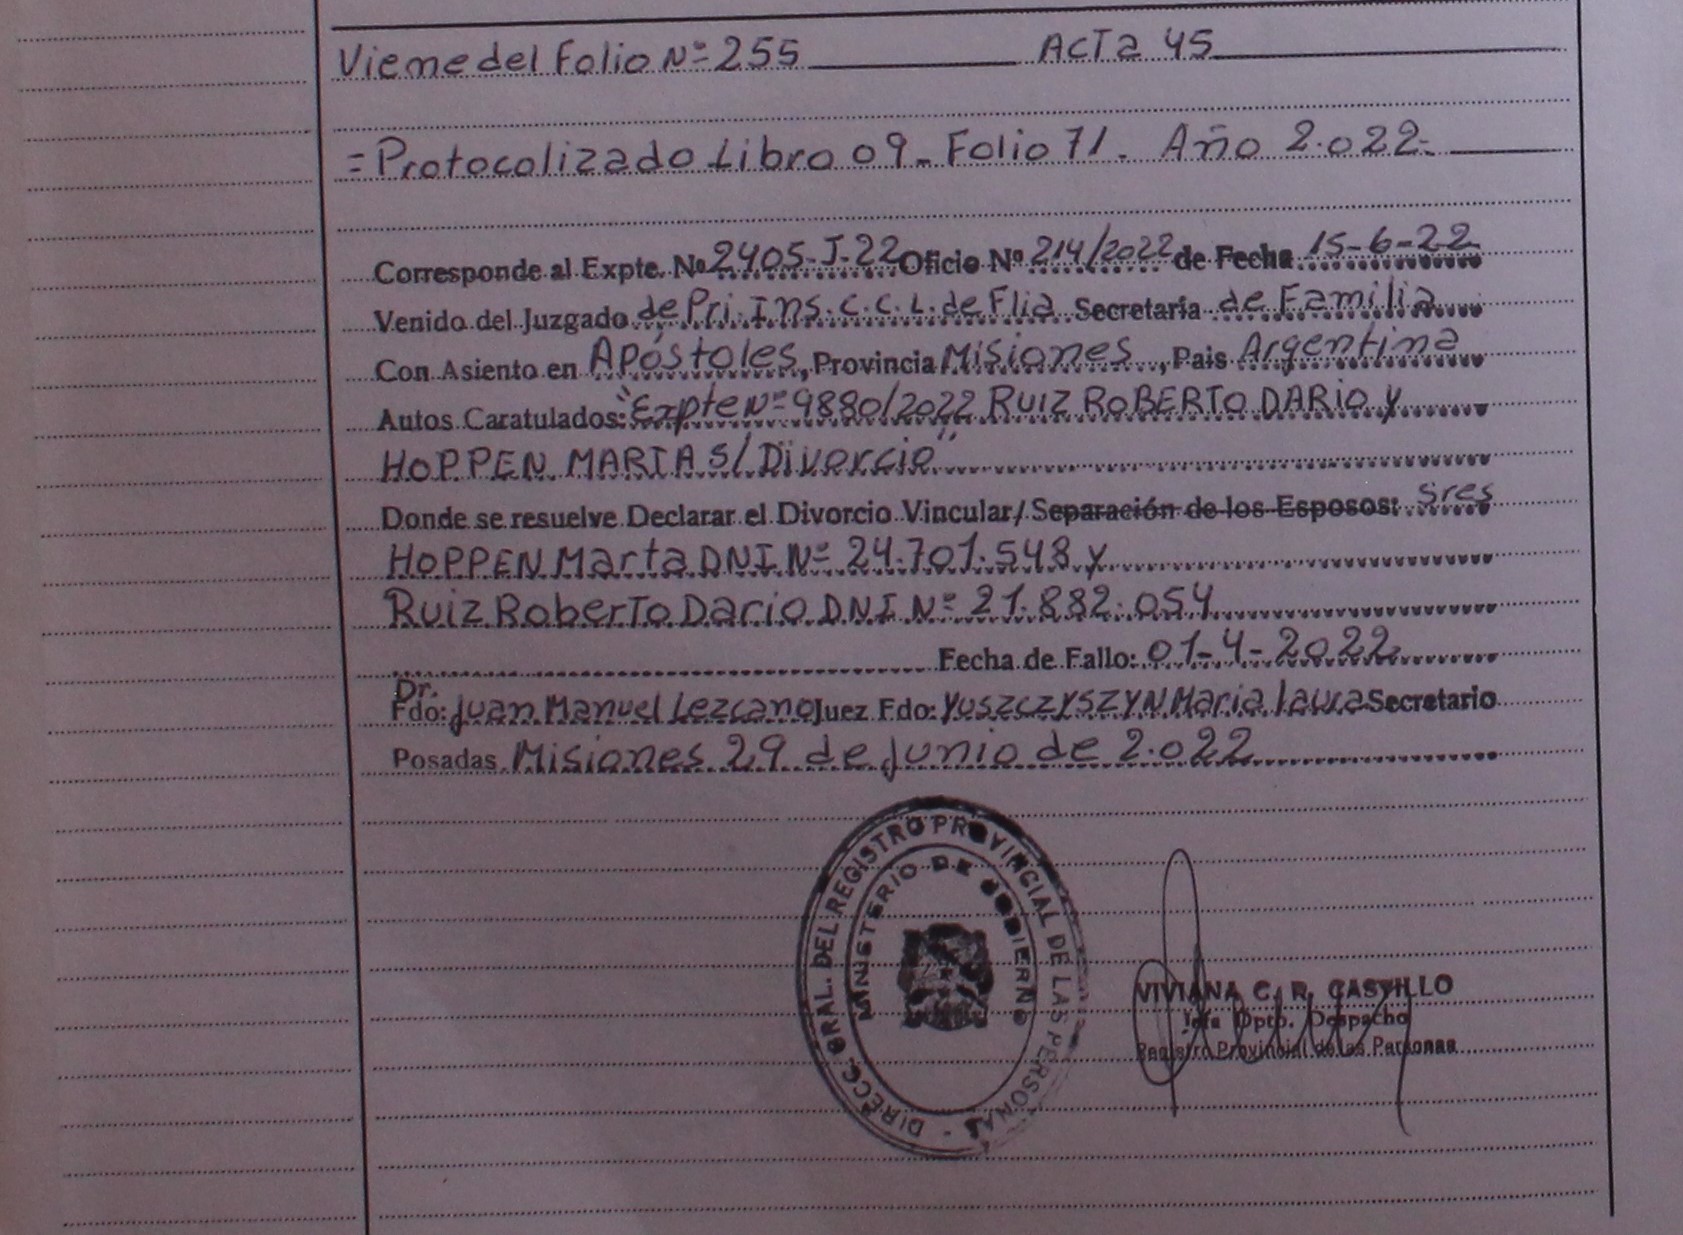 Viene del Folio Nº 255 ACTA 45
= Protocolizado Libro 09 - Folio 71. Año 2.022.
Corresponde al Expte. Nº 2405-J-22 Oficio Nº 214/2022 de Fecha 15-6-22
Venido del Juzgado de Pri. Ins. C.C.L. de Flia Secretaría de Familia
Con Asiento en Apóstoles, Provincia Misiones, Pais Argentina
Autos Caratulados: "Expte Nº 9880/2022 RUIZ ROBERTO DARIO y
HOPPEN MARTA S/ Divorcio"
Donde se resuelve Declarar el Divorcio Vincular/ Separación de los Esposos: Sres
HOPPEN Marta DNI Nº 24.701.548 y
Ruiz Roberto Dario DNI Nº 21.882.054
Fecha de Fallo: 01-4-2022
Dr.
Fdo: Juan Manuel Lezcano Juez Fdo: YUSZCZYSZYN Maria laura Secretario
Posadas Misiones 29 de Junio de 2.022
DIRECC. GRAL. DEL REGISTRO PROVINCIAL DE LAS PERSONAS -
MINISTERIO DE GOBIERNO
VIVIANA C. R. CASTILLO
Jefa Dpto. Despacho
Registro Provincial de las Personas